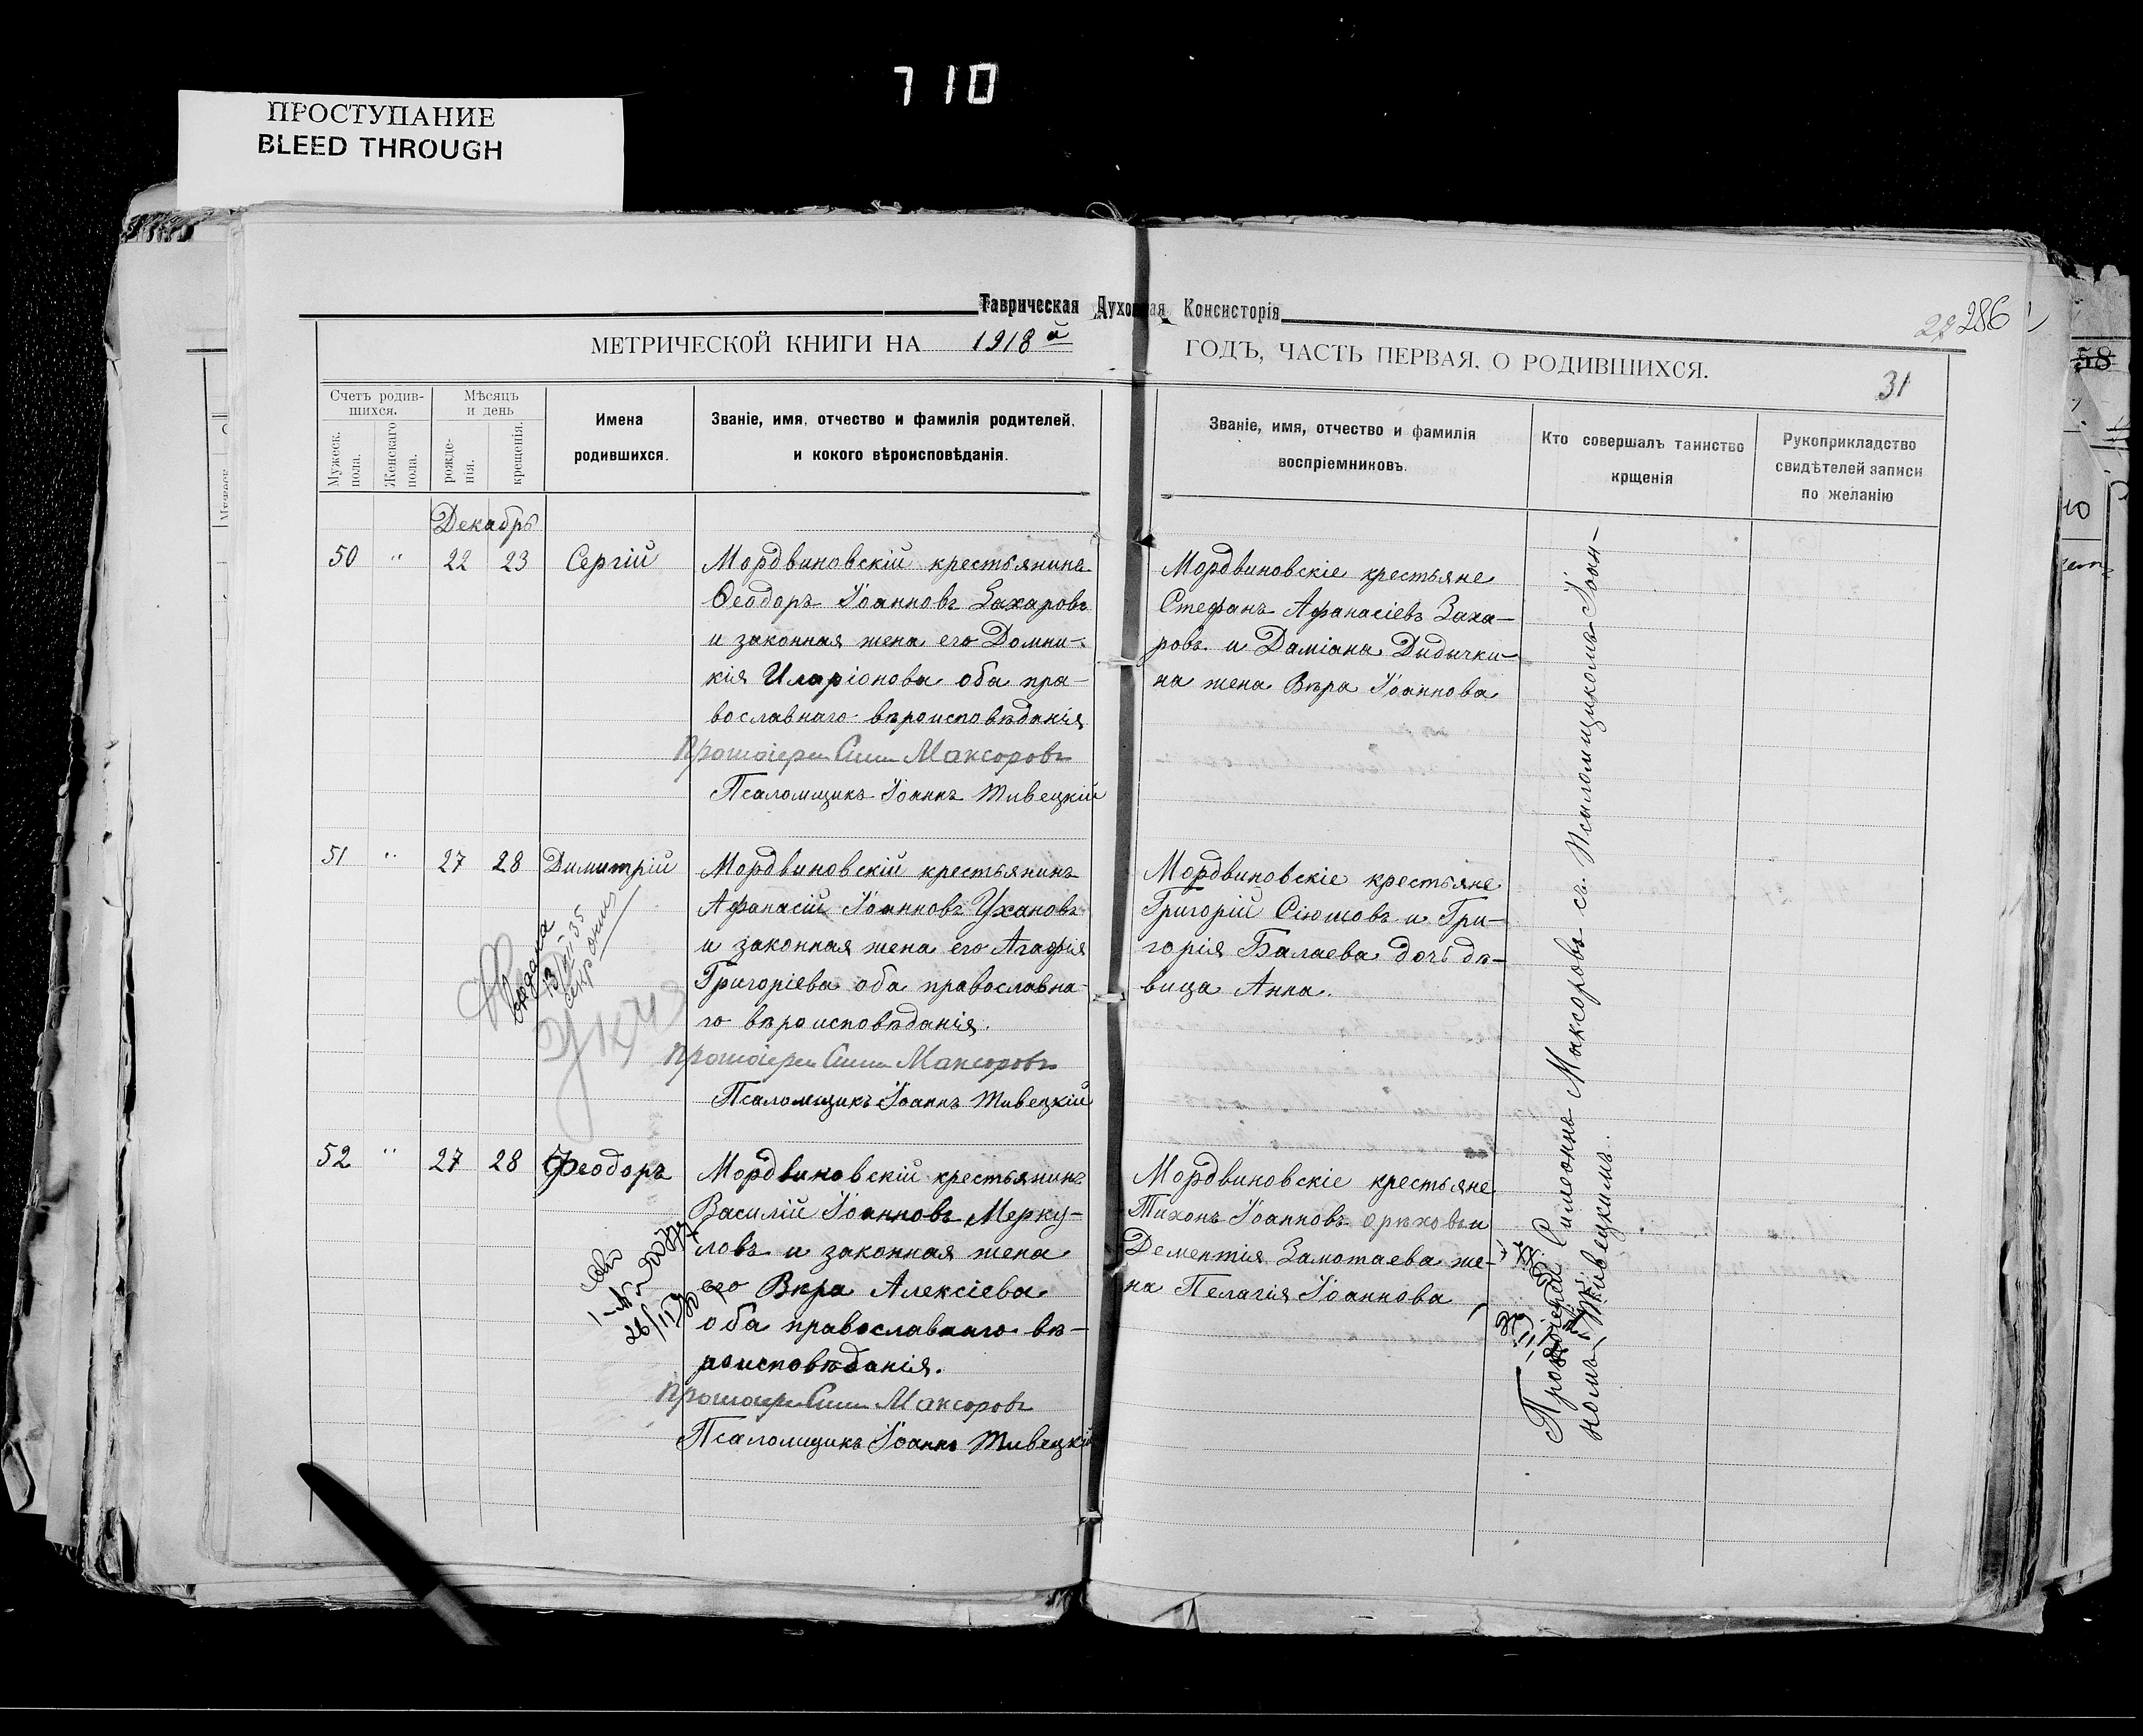 710
ПРОСТУПАНИЕ
BLEED THROUGH
Таврическая Духовная Консисторія
286
МЕТРИЧЕСКОЙ КНИГИ НА 1918й ГОДЪ, ЧАСТЬ ПЕРВАЯ, О РОДИВШИХСЯ.
31
58
Счетъ родив-
шихся.
Мужеск.
пола.
Женскаго
пола.
Мѣсяцъ
и день
рожде-
нія.
крещенія.
Имена
родившихся.
Званіе, имя, отчество и фамилія родителей,
и кокого вѣроисповѣданія.
Званіе, имя, отчество и фамилія
воспріемниковъ.
Кто совершалъ таинство
крщенія
Рукоприкладство
свидѣтелей записи
по желанію
Декабрь
50 " 22 23 Сергій
Мордвиновскій крестьянинъ
Ѳеодоръ Іоанновъ Захаровъ
и законная жена его Домни-
кія Иларіонова оба пра-
вославнаго вѣроисповѣданія
Протоіерей Сим Максоровъ
Псаломщикъ Іоаннъ Живецкій
Мордвиновскіе крестьяне
Стефанъ Афанасіевъ Заха-
ровъ и Даміана Дидычки-
на жена Вѣра Іоаннова
51 " 27 28 Димитрій
Мордвиновскій крестьянинъ
Афанасій Іоанновъ Ухановъ
и законная жена его Агафія
Григоріева оба православна-
го вѣроисповѣданія.
Протоіерей Сим Максоровъ
Псаломщикъ Іоаннъ Живецкій
Мордвиновскіе крестьяне
Григорій Сіюшовъ и Гри-
горія Балаева дочь дѣ-
вица Анна.
52 " 27 28 Феодоръ
Мордвиновскій крестьянинъ
Василій Іоанновъ Мерку-
ловъ и законная жена
его Вѣра Алексіева
оба православнаго вѣ-
роисповѣданія.
Протоіерей Сим Максоровъ
Псаломщикъ Іоаннъ Живецкій
Мордвиновскіе крестьяне
Тихонъ Іоанновъ Орѣховъ и
Дементія Замотаева же-
на Пелагія Іоаннова
Протоіерей Симеонъ Максоровъ съ Псаломщикомъ Іоан-
номъ Живецкимъ.